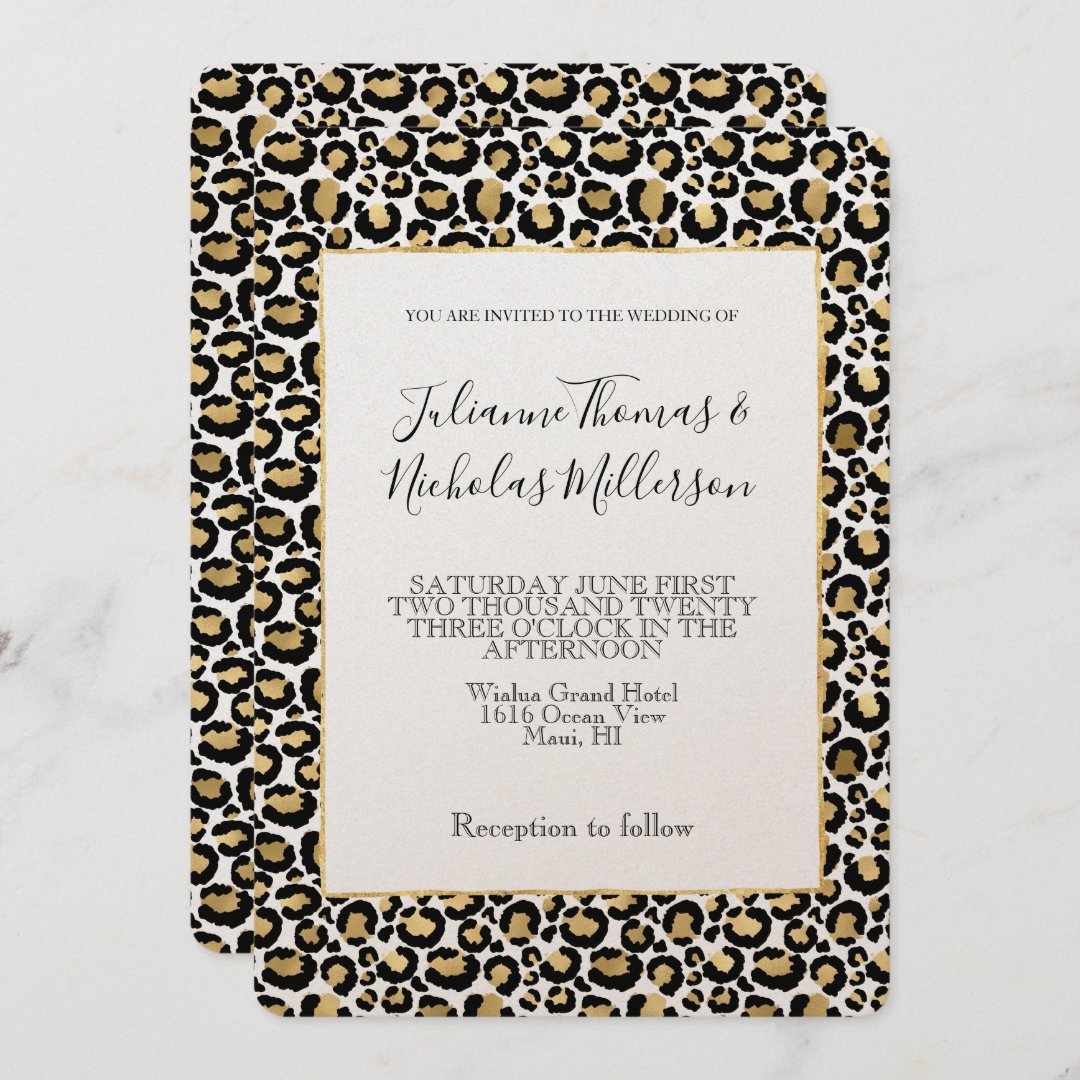 YOU ARE INVITED TO THE WEDDING OF
Julianne Thomas &
Nicholas Millerson
SATURDAY JUNE FIRST
TWO THOUSAND TWENTY
THREE O'CLOCK IN THE
AFTERNOON
Wialua Grand Hotel
1616 Ocean View
Maui, HI
Reception to follow